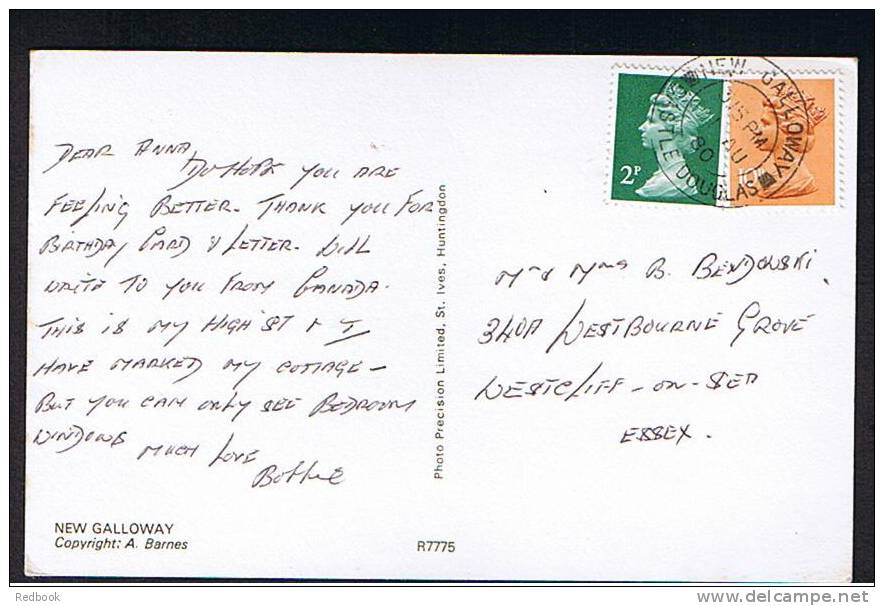 DEAR ANNA,
DO HOPE YOU ARE
FEELING BETTER. THANK YOU FOR
BIRTHDAY CARD & LETTER. WILL
WRITE TO YOU FROM CANADA.
THIS IS MY HIGH ST & I
HAVE MARKED MY COTTAGE –
BUT YOU CAN ONLY SEE BEDROOM
WINDOWS
MUCH LOVE
NEW GALLOWAY
Copyright: A. Barnes
R7775
Photo Precision Limited, St. Ives, Huntingdon
2P
NEW GALLOWAY
CASTLE DOUGLAS
PM
AU
80
Mr & Mrs B. BENDOWSKI
340A WESTBOURNE GROVE
WESTCLIFF-ON-SEA
ESSEX.
Redbook
www.delcampe.net